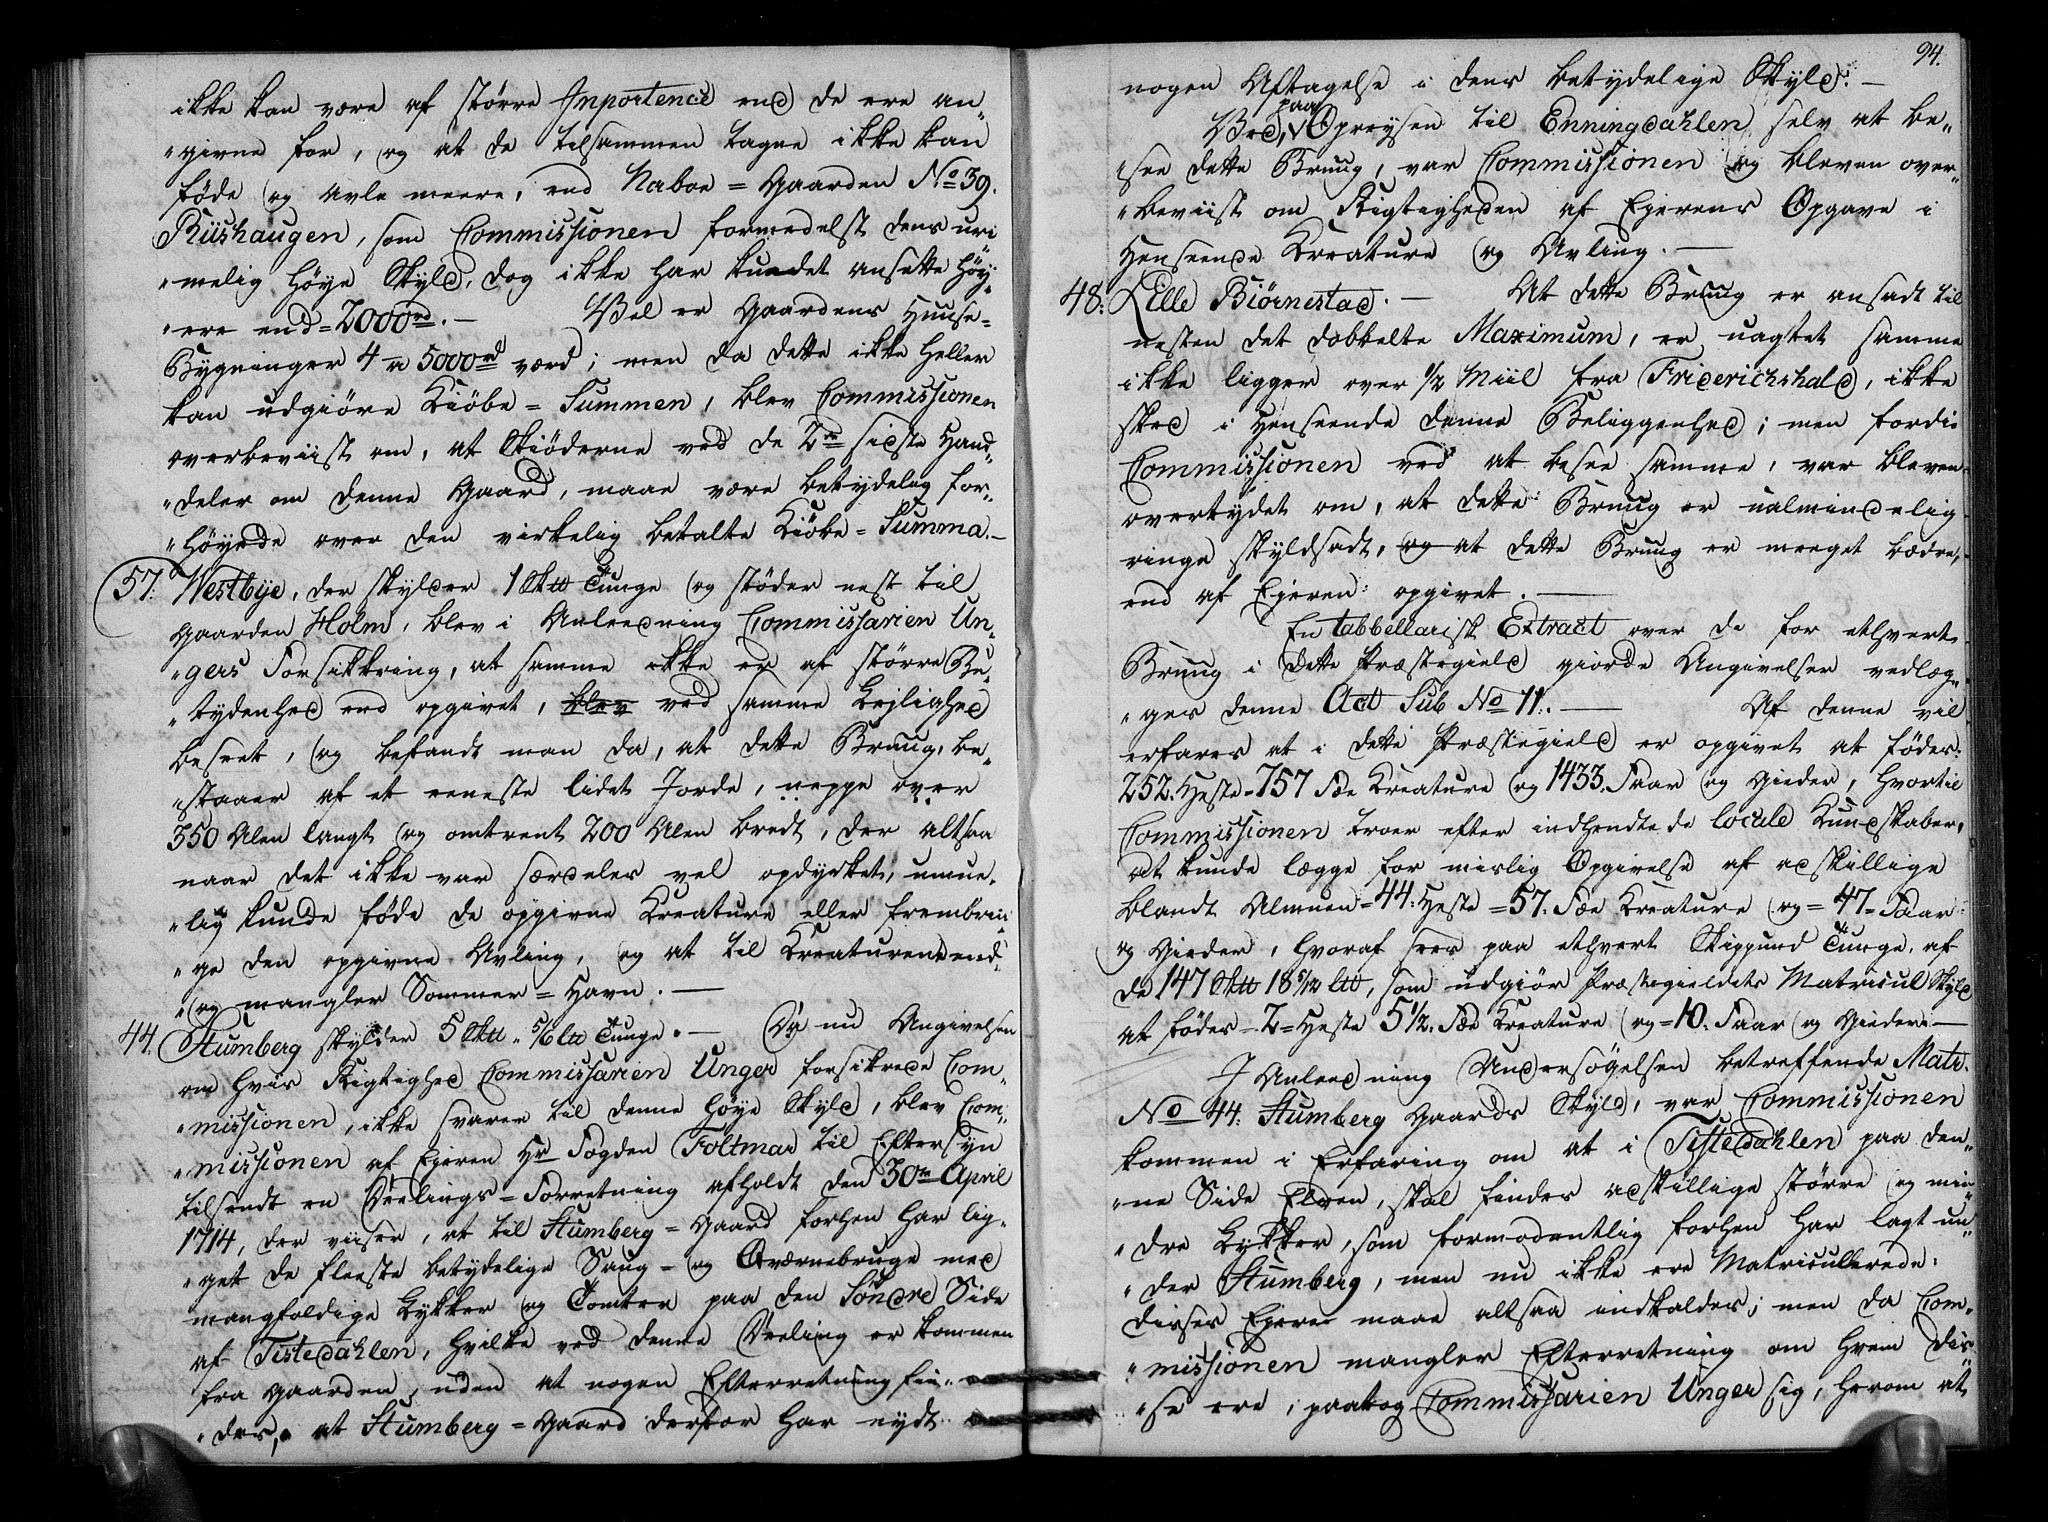 ikke kan være af större Inportence end de ere an„
„givne for, og at de tilsammen tagne ikke kan
föde og avle meere, end Naboe = Gaarden No 39.
Riishaugen, som Commissionen formedelst dens uri
„melig höye Skyld, dog ikke har kundet ansette höy„
„ere end = 2000rd. — Vel er Gaardens Huuse =
Bygninger 4 a 5000rd værd; men da dette ikke heller
kan udgiöre Kiöbe = Summen, blev Commissionen
overbeviist om, at Skiöderne ved de 2de sidste Hand„
„deler om denne Gaard, maae være betydelig for„
„höyede over den virkelig betalte Kiöbe = Summa. —
57. Westbye, der skylder 1 Skth Tunge og stöder nest til
Gaarden Holm, blev i Anleedning Commissarien Un„
„gers Forsikkring, at samme ikke er af större Be„
„tydenhed end opgivet, blev ved samme Lejlighed
beseet, og befandt man da, at dette Bruug, be„
„staaer af et eeneste lidet Jorde, neppe over
350 Alen langt og omtrent 200 Alen bredt, der altsaa
naar det ikke var særdeles vel opdyrket, umue„
„lig kunde föde de opgivne Kreature eller frembrin„
„ge den opgivne Avling, og at til Kreaturene end„
„og mangler Sommer = Havn. —
44. Stumberg skylder 5 Skth. 5/6 Lth Tunge. — Da nu Angivelsen
om hvis Rigtighed Commissarien Unger forsikrede Com„
„missionen, ikke svarer til denne höye Skyld, blev Com„
„missionen af Ejeren Hr Fogden Foltmar til Eftersyn
tilsendt en Deelings = Forretning afholdt den 30te April
1714, der viiser, at til Stumberg = Gaard forhen har lig„
„get de fleeste betydelige Saug = og Qværnebruge med
mangfoldige Lykker og Tomter paa den Söndre Side
af Tistedahlen, hvilke ved denne Deeling er kommen
fra Gaarden, uden at nogen Efterretning fin„
„des, at Stumberg = Gaard derfor har nydt
94.
nogen Aftagelse i dens betydelige Skyld. —
Ved paa Opreysen til Enningdahlen selv at be„
„see dette Bruug, var Commissionen og bleven over„
„beviist om Rigtigheden af Ejerens Opgave i
Henseende Kreature og Avling. —
48. Lille Biörnestad. — At dette Bruug er ansadt til
nesten det dobbelte Maximum, er uagtet samme
ikke ligger over 1/2 Miil fra Friderichshald, ikke
skeed i Henseende denne Beliggenhed; men fordi
Commissionen ved at besee samme, var bleven
overtydet om, at dette Bruug er ualmindelig
ringe skyldsadt, og at dette Bruug er meeget bædre,
end af Ejeren opgivet. —
En tabbellarisk Extract over de for ethvert
Bruug i dette Præstegield giorde Angivelser vedlæg„
„ges denne Act Sub No 11. — Af denne vil
erfares at i dette Præstegield er opgivet at födes:
252. Heste = 757 Fæe Kreature og 1433. Faar og Gieder, hvortil
Commissionen troer efter indhendtede locale Kundskaber,
at kunde lægge for mislig Opgivelse af adskillige
blandt Almuen = 44. Heste = 57. Fæe Kreature og = 47 = Faar
og Gieder, hvoraf sees paa ethvert Skippund Tunge, af
de 147 Skth 18 5/12 Lth, som udgiör Præstegieldets Matricul Skyld
at födes = 2 = Heste 5 1/2. Fæe Kreature og = 10. Faar og Gieder. —
I Anleedning Undersögelsen betreffende Matr.
No 44. Stumberg Gaards Skyld, var Commissionen
kommen i Erfaring om at i Tistedahlen paa den„
„ne Side Elven, skal findes adskillige större og min„
„dre Lykker, som formodentlig forhen har lagt un„
„der Stumberg, men nu ikke ere Matriculerede:
disses Ejere maae altsaa indkaldes; men da Com„
„missionen mangler Efterretning om hvem dis„
„se ere, paatog Commissarien Unger sig, herom at